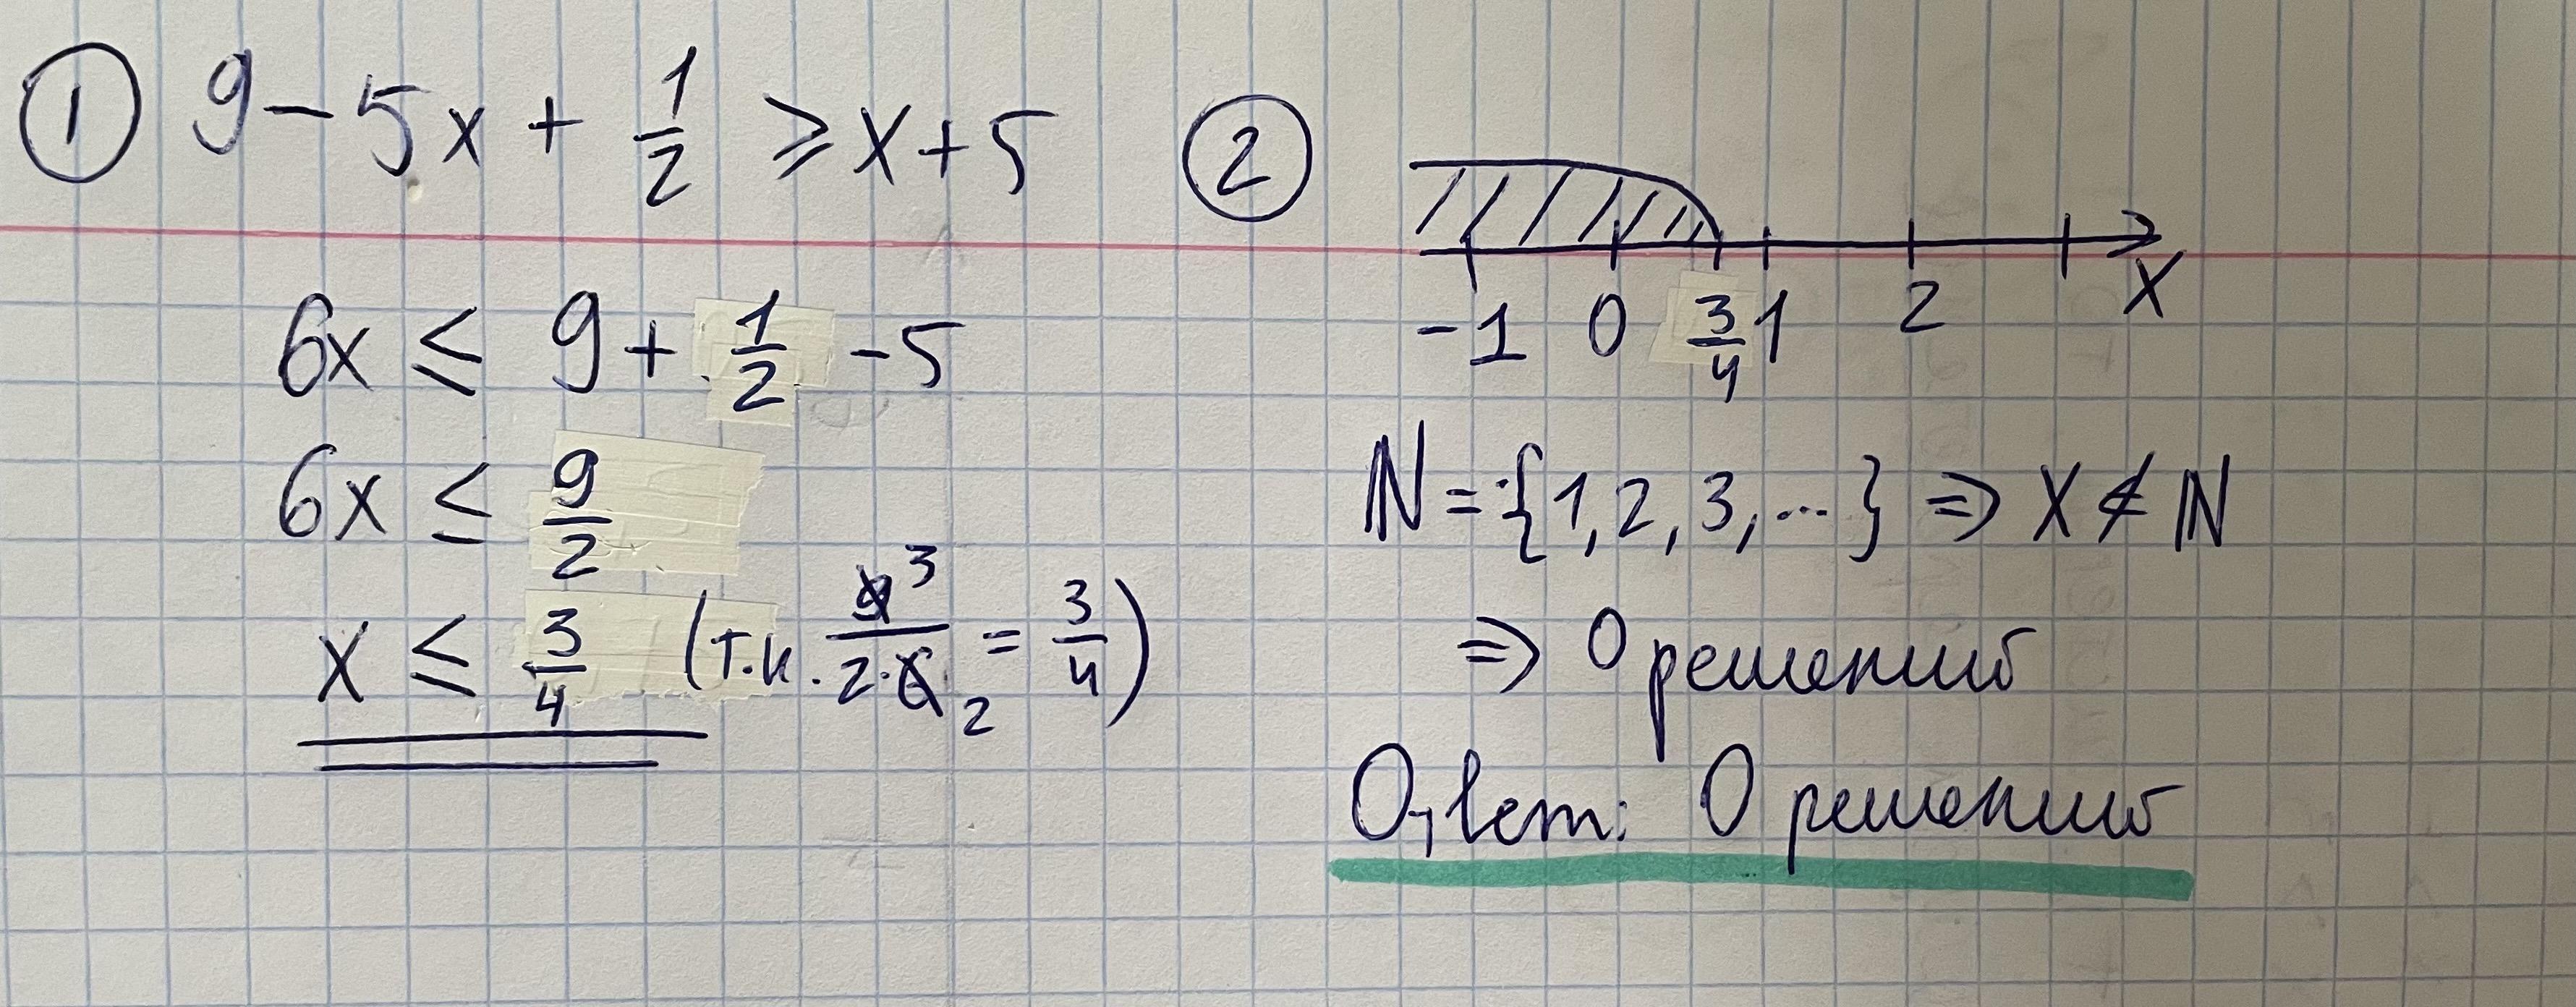 ① 9 - 5x + 1/2 ⩾ x + 5
6x ≤ 9 + 1/2 - 5
6x ≤ 9/2
x ≤ 3/4 (т.к. 9³/2·6₂ = 3/4)
②
-1 0 3/4 1 2 x
ℕ = {1, 2, 3, ...} ⇒ x ∉ ℕ
⇒ 0 решений
Ответ: 0 решений